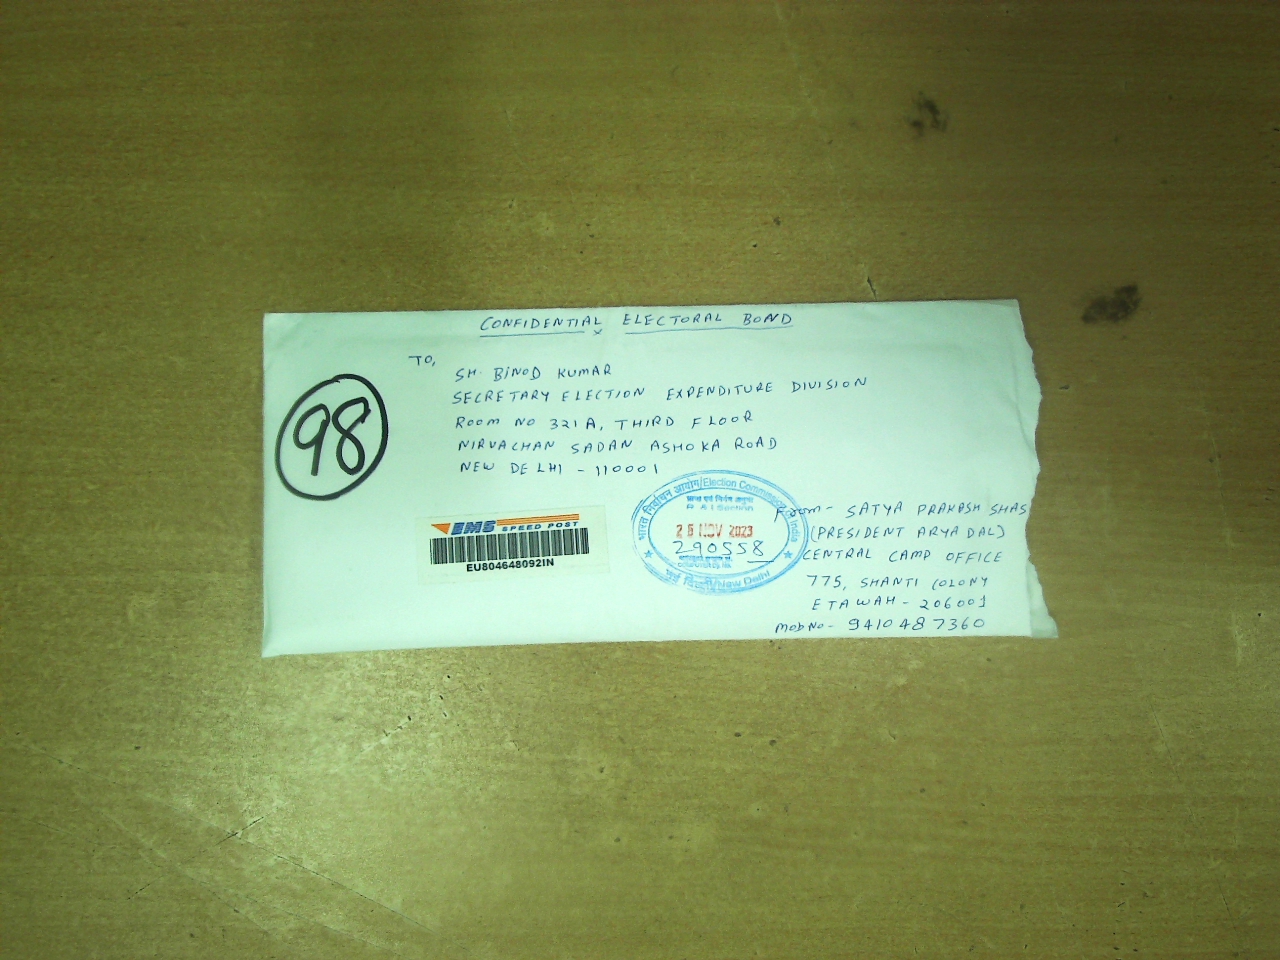 CONFIDENTIAL ELECTORAL BOND
TO,
SH. BINOD KUMAR
SECRETARY ELECTION EXPENDITURE DIVISION
ROOM NO 321A, THIRD FLOOR
NIRVACHAN SADAN ASHOKA ROAD
NEW DELHI - 110001
98
EMS SPEED POST
EU804648092IN
भारत निर्वाचन आयोग/Election Commission of India
R & I Section
NOV 2023
290558
नई दिल्ली/New Delhi
From - SATYA PRAKASH SHAS
(PRESIDENT ARYA DAL)
CENTRAL CAMP OFFICE
775, SHANTI COLONY
ETAWAH - 206001
MOB NO - 9410487360